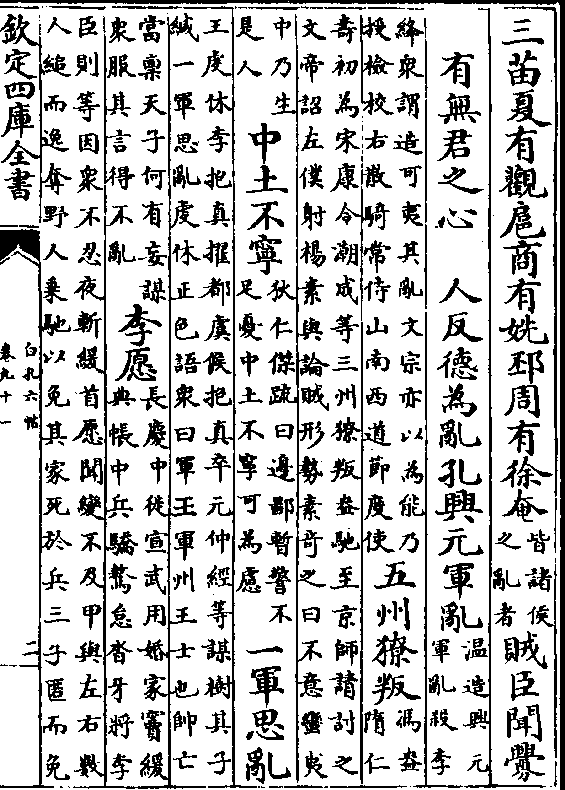 三苗夏有觀扈商有姺邳周有徐奄
皆諸侯
之亂者
賊臣聞釁
有無君之心　人反德為亂孔興元軍亂
温造興元
軍亂殺李
絳衆謂造可夷其亂文宗亦以為能乃
授檢校右散騎常侍山南西道節度使
五州獠叛
馮盎
隋仁
壽初為宋康令潮成等三州獠叛盎馳至京師請討之
文帝詔左僕射楊素與論賊形勢素奇之曰不意蠻夷
中乃生
是人
中土不寧
狄仁傑疏曰邊鄙暫警不
足憂中土不寧可為慮
一軍思亂
王虔休李把真擢都虞候把真卒元仲經等謀樹其子
緘一軍思亂虔休正色語衆曰軍王軍州王士也帥亡
當禀天子何有妄謀
衆服其言得不亂
李愿
長慶中徙宣武用婚家竇緩
典帳中兵驕驁怠沓牙將李
臣則等因衆不忍夜斬緩首愿聞變不及甲與左右數
人縋而逸奪野人乗馳以免其家死於兵三子匿而免
欽定四庫全書
白孔六帖
卷九十一
二